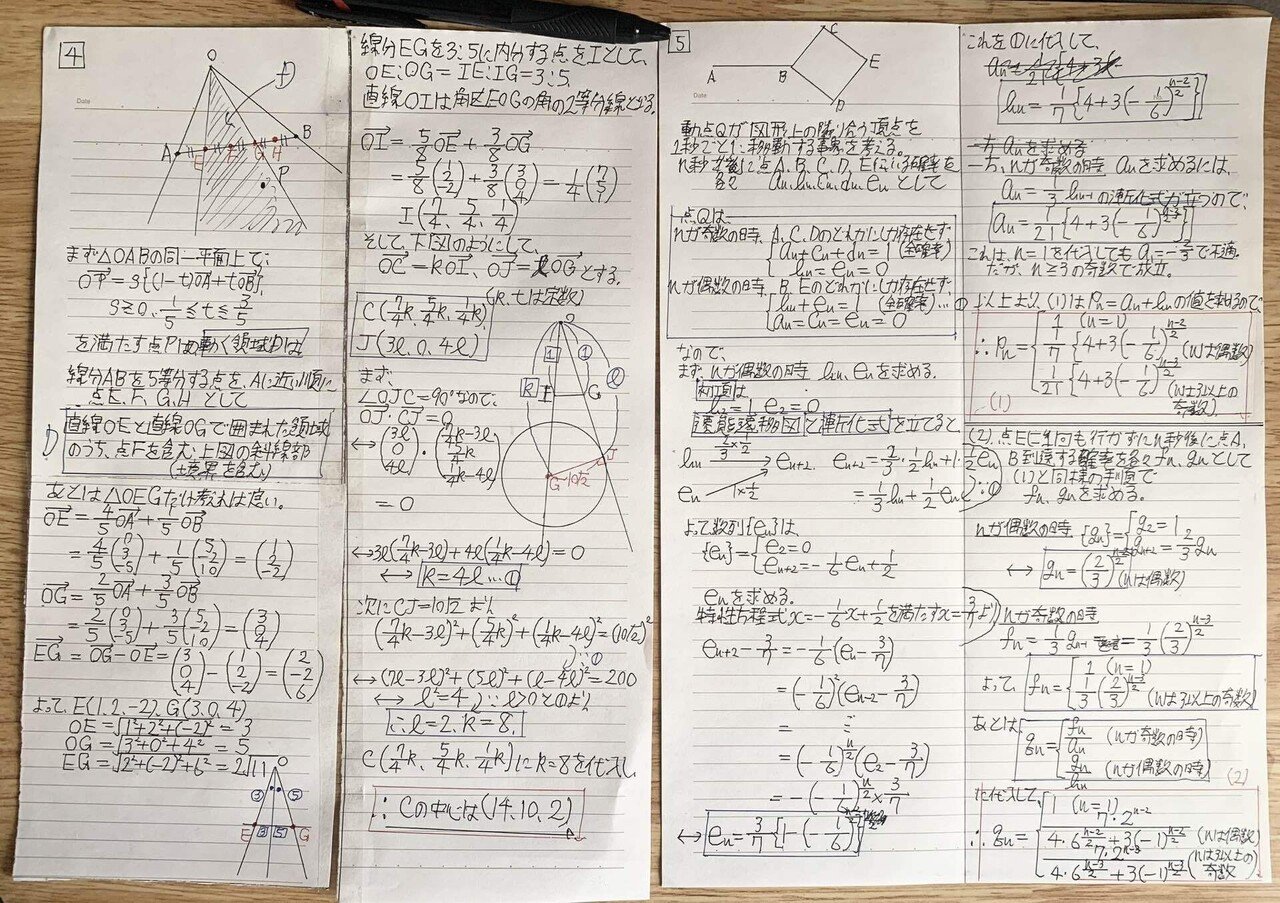 4
Date
O
D
A
E
F
G
H
B
P
まず△OABの同一平面上で、
OP→=s{(1-t)OA→+tOB→},
s≧0, 1/5≦t≦3/5
を満たす点Pは動く領域Dは、
線分ABを5等分する点を、Aに近い順に
E、F、G、Hとして
D
直線OEと直線OGで囲まれた領域
のうち、点Fを含む、上図の斜線部
(境界を含む)
あとは△OEGだけ考えれば良い。
OE→=4/5OA→+1/5OB→
=4/5(0 3 -5)+1/5(5 -2 10)=(1 2 -2)
OG→=2/5OA→+3/5OB→
=2/5(0 3 -5)+3/5(5 -2 10)=(3 0 4)
EG→=OG→-OE→=(3 0 4)-(1 2 -2)=(2 -2 6)
よって、E(1,2,-2),G(3,0,4)
OE=√1²+2²+(-2)²=3
OG=√3²+0²+4²=5
EG=√2²+(-2)²+6²=2√11
O
③
⑤
E
3
5
G
線分EGを3:5に内分する点をIとして、
OE:OG=IE:IG=3:5.
直線OIは角∠EOGの角の2等分線となる。
OI→=5/8OE→+3/8OG→
=5/8(1 2 -2)+3/8(3 0 4)=1/4(7 5 1)
I(7/4, 5/4, 1/4)
そして、下図のようにして、
OC→=kOI→、OJ→=lOG→とする。
C(7/4k, 5/4k, 1/4k)
J(3l, 0, 4l)
まず
∠OJC=90°なので、
OJ→・CJ→=0
⇔(3l 0 4l)・(7/4k-3l 5/4k 1/4k-4l)
=0
O
1
①
l
k
G
G
10√2
J
⇔3l(7/4k-3l)+4l(1/4k-4l)=0
⇔k=4l…①
次にCJ=10√2より
(7/4k-3l)²+(5/4k)²+(1/4k-4l)²=(10√2)²
∵①
⇔(7l-3l)²+(5l)²+(l-4l)²=200
⇔l²=4 ∵l>0と①より
∴l=2、k=8.
C(7/4k、5/4k、1/4k)にk=8を代入し
∴Cの中心は(14,10,2)
5
A
B
C
D
E
動点Qが図形上の隣り合う頂点を
1秒ごとに移動する事象を考える。
n秒後に点A、B、C、D、Eにいる確率を
各々 an、bn、cn、dn、enとして
点Qは、
nが奇数の時、A、C、Dのどれかにしか存在せず、
{an+cn+dn=1(全確率)
bn=en=0
nが偶数の時、B、Eのどれかにしか存在せず、
{bn+en=1(全確率)…①
an=cn=en=0
なので、
まず、nが偶数の時 bn、enを求める。
初項は
b2=1 e2=0
と漸化式を立てると
bn 2/3×1/2
en 1×1/2
en+2. en+2=2/3・1/2bn+1・1/2en
=1/3bn+1/2en ∵①
よって数列{en}は、
{en}={e2=0
en+2=-1/6en+1/2
enを求める。
特性方程式x=-1/6x+1/2を満たすx=3/7より
en+2-3/7=-1/6(en-3/7)
=(-1/6)²(en-2-3/7)
=(-1/6)^n/2(e2-3/7)
=-(-1/6)^n/2×3/7
これを①に代入して、
bn=1/7{4+3(-1/6)^(n-2)/2}
一方anを求める
一方、nが奇数の時 anを求めるには、
an=1/3bn-1の漸化式が立つので、
an=1/21{4+3(-1/6)^(n-3)/2}
だが、n≧3の奇数で成立。
以上より、(1)はPn=an+bnの値を知るので、
∴Pn={1 (n=1)
1/7{4+3(-1/6)^(n-2)/2}(nは偶数)
1/21{4+3(-1/6)^(n-3)/2}(nは3以上の
奇数)
(1)
(2).点Eに1回も行かずにn秒後に点A、
B到達する確率を各々fn、gnとして
(1)と同様の手順で
fn、gnを求める。
nが偶数の時 {gn}={g2=1
gn+2=2/3gn
⇔gn=(2/3)^(n-2)/2(nは偶数)
nが奇数の時
fn=1/3gn-1=1/3(2/3)^(n-3)/2
よって、fn={1 (n=1)
1/3(2/3)^(n-3)/2(nは3以上の奇数)
あとは
qn={fn/an(nが奇数の時)
gn/bn(nが偶数の時)
(2)
に代入して、
∴qn={1 (n=1)
7・2^n-2
4・6^(n-2)/2+3(-1)^(n-2)/2(nは偶数)
4・6^(n-3)/2+3(-1)^(n-3)/2(nは3以上の
奇数